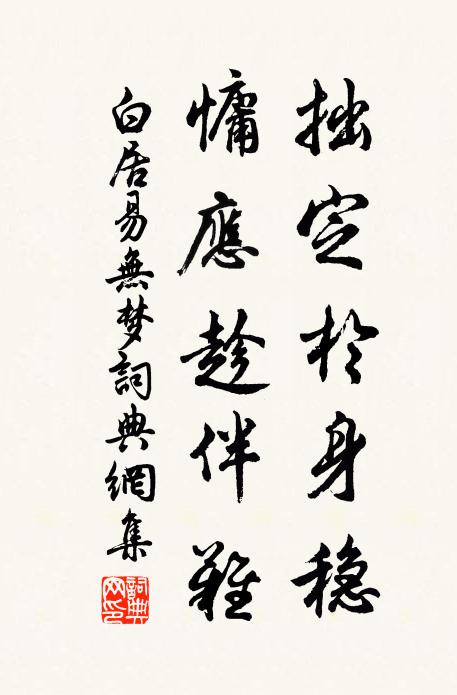 拙定於身穩
慵應趂伴難
白居易無梦詞典網集
詞典網印